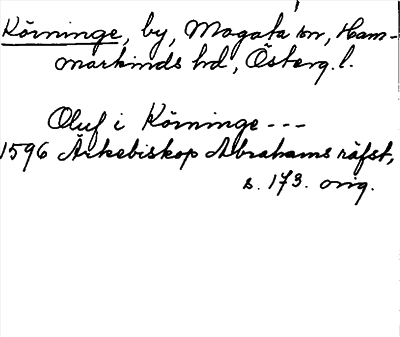 Körninge, by, Mogata sn, Ham-
markinds hd, Österg. l.
Oluf i Körninge ---
1596 Ärkebiskop Abrahams räfst,
s. 173. orig.